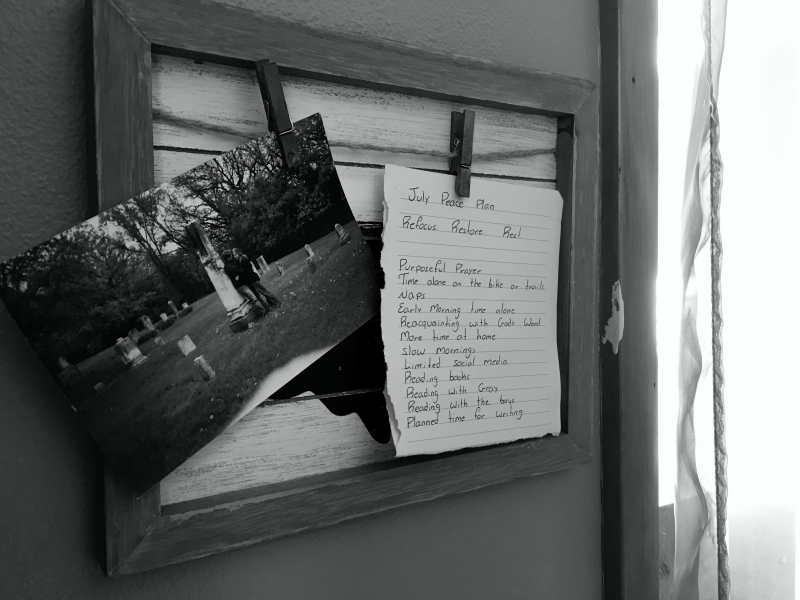 July Peace Plan
Refocus Restore Rest
Purposeful Prayer
Time alone on the bike or trails
Naps
Early Morning time alone
Reacquainting with Gods Word
More time at home
Slow mornings
Limited social media
Reading books
Reading with Gray
Reading with the boys
Planned time for writing